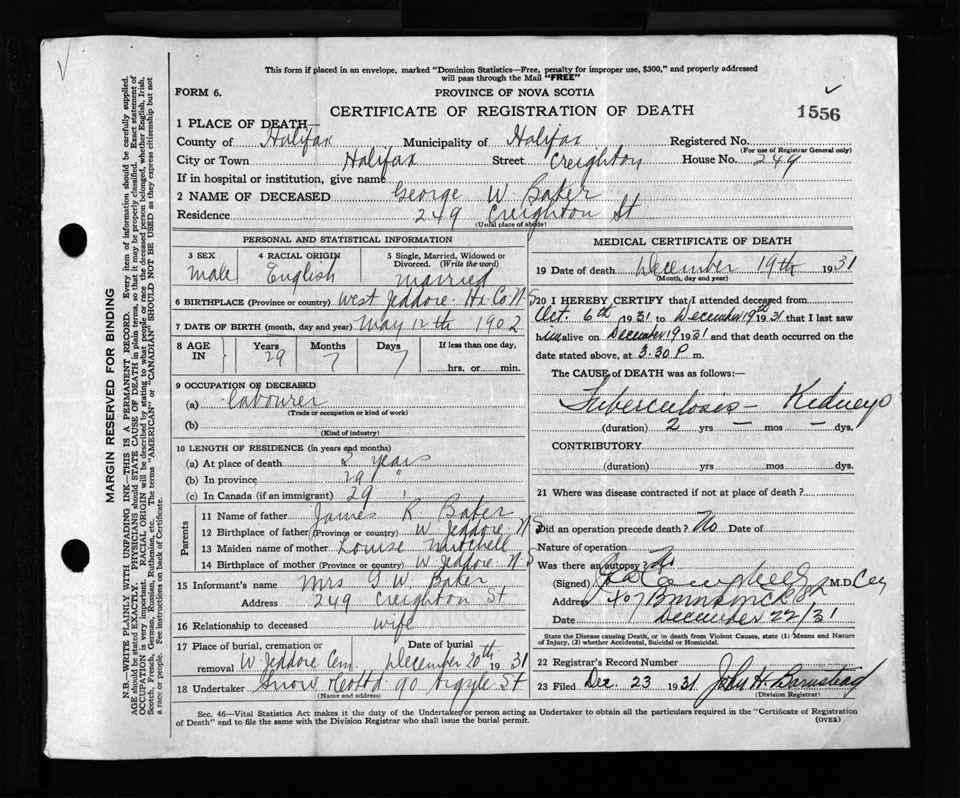 This form if placed in an envelope, marked "Dominion Statistics—Free, penalty for improper use, $300," and properly addressed
will pass through the Mail "FREE"
FORM 6.
PROVINCE OF NOVA SCOTIA
CERTIFICATE OF REGISTRATION OF DEATH
1556
1 PLACE OF DEATH—
County of Halifax Municipality of Halifax Registered No.
(For use of Registrar General only)
City or Town Halifax Street Creighton House No. 249
If in hospital or institution, give name
2 NAME OF DECEASED George W. Baker
Residence 249 Creighton St
(Usual place of abode)
PERSONAL AND STATISTICAL INFORMATION
3 SEX 4 RACIAL ORIGIN 5 Single, Married, Widowed or Divorced. (Write the word)
Male English Married
6 BIRTHPLACE (Province or country) West Jeddore Hx. Co. N.S
7 DATE OF BIRTH (month, day and year) May 12th 1902
8 AGE IN Years Months Days If less than one day,
29 7 7 hrs. or min.
9 OCCUPATION OF DECEASED
(a) Labourer
(Trade or occupation or kind of work)
(b)
(Kind of industry)
10 LENGTH OF RESIDENCE (in years and months)
(a) At place of death 2 years
(b) In province 29 "
(c) In Canada (if an immigrant) 29 '
Parents
11 Name of father James R Baker
12 Birthplace of father (Province or country) W. Jeddore. N S
13 Maiden name of mother Louise Mitchell
14 Birthplace of mother (Province or country) W. Jeddore. N S
15 Informant's name Mrs G. W. Baker
Address 249 Creighton St
16 Relationship to deceased wife
17 Place of burial, cremation or removal W. Jeddore Cem. Date of burial December 20th 1931
18 Undertaker Snow & Co Ltd 90 Argyle St
(Name and address)
MEDICAL CERTIFICATE OF DEATH
19 Date of death December 19th 1931
(Month, day and year)
20 I HEREBY CERTIFY that I attended deceased from
Oct. 6th 1931 to December 19th 1931 that I last saw
him alive on December 19 1931 and that death occurred on the
date stated above, at 3.30 P. m.
The CAUSE of DEATH was as follows:—
Tuberculosis — Kidneys
(duration) 2 yrs — mos — dys.
CONTRIBUTORY
(duration) yrs mos dys.
21 Where was disease contracted if not at place of death?
Did an operation precede death? No Date of
Nature of operation
Was there an autopsy No
(Signed) Campbell M.D
Address 407 Brunswick St
Date December 22/31
State the Disease causing Death, or in death from Violent Causes, state (1) Means and Nature
of Injury, (2) whether Accidental, Suicidal or Homicidal.
22 Registrar's Record Number
23 Filed Dec. 23 1931 John H. Barnstead
(Division Registrar)
Sec. 46—Vital Statistics Act makes it the duty of the Undertaker or person acting as Undertaker to obtain all the particulars required in the "Certificate of Registration
of Death" and to file the same with the Division Registrar who shall issue the burial permit.
(OVER)
MARGIN RESERVED FOR BINDING
N.B.—WRITE PLAINLY WITH UNFADING INK—THIS IS A PERMANENT RECORD. Every item of information should be carefully supplied.
AGE should be stated EXACTLY. PHYSICIANS should STATE CAUSE OF DEATH in plain terms, so that it may be properly classified. Exact statement of
OCCUPATION is very important. RACIAL ORIGIN will be described by stating to what people or race the deceased person belonged, whether English, Irish,
Scotch, French, German, Russian, Ruthenian, etc. The terms "AMERICAN" or "CANADIAN" SHOULD NOT BE USED as they express citizenship but not
a race or people. See instructions on back of Certificate.